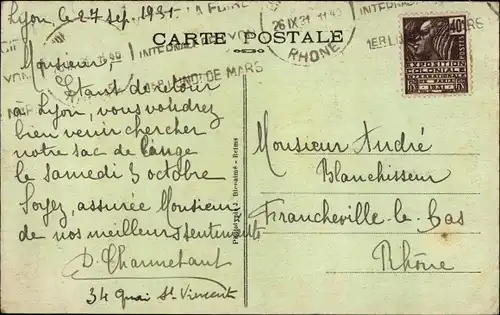 Lyon, le 27 sep. 1931.
CARTE POSTALE
Monsieur,
Étant de retour
à Lyon, vous voudrez
bien venir chercher
notre sac de linge
le samedi 3 octobre
Soyez, assurée Monsieur
de nos meilleurs sentiments
D. Charmetant
34 Quai St Vincent
Phototypie - Bienaimé - Reims
26 IX 31
RHONE
INTERNATI
1ER LUNDI DE MARS
40c
EXPOSITION
COLONIALE
INTERNATIONALE
PARIS
1931
Monsieur André
Blanchisseur
Francheville-le-Bas
Rhône